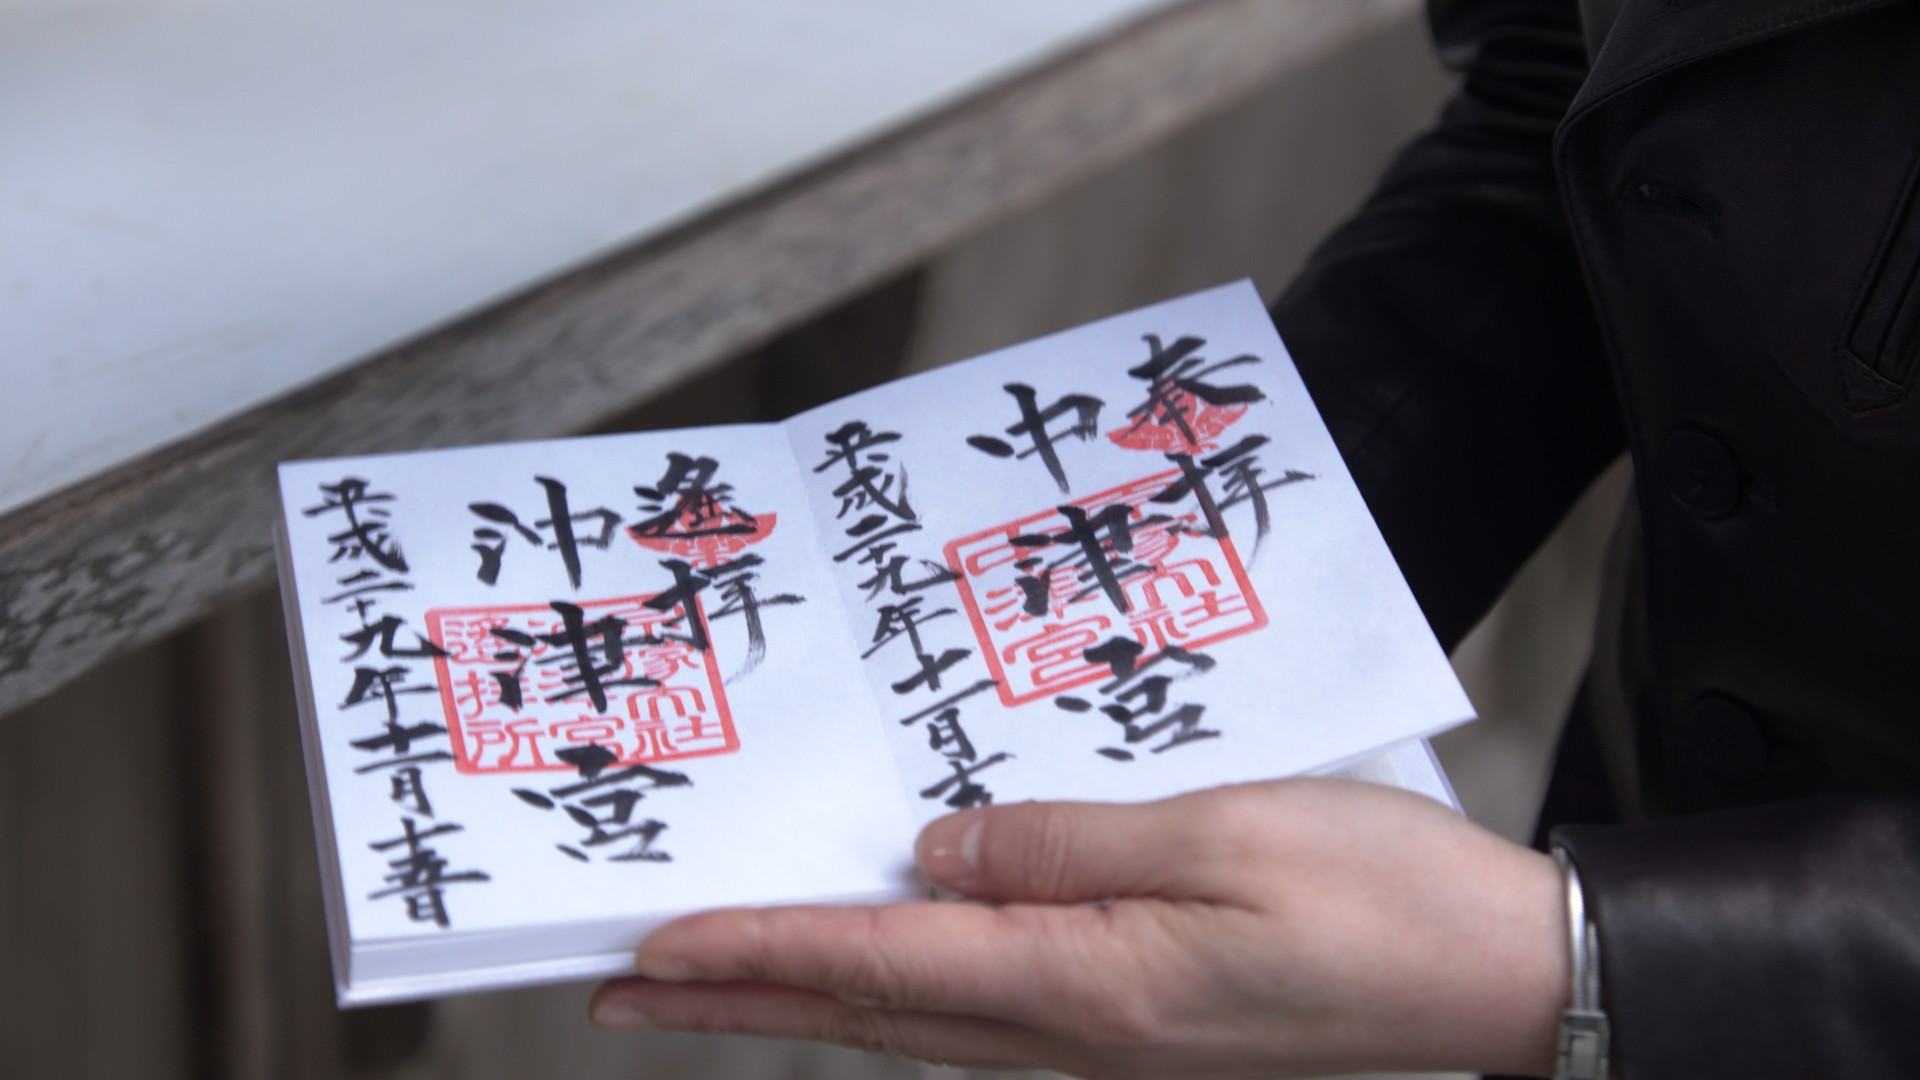 奉拝
宗像大社
中津宮
中津宮
平成二十九年十一月十五
遙拝
宗像大社
沖津宮
遙拝所
沖津宮
平成二十九年十一月十五日